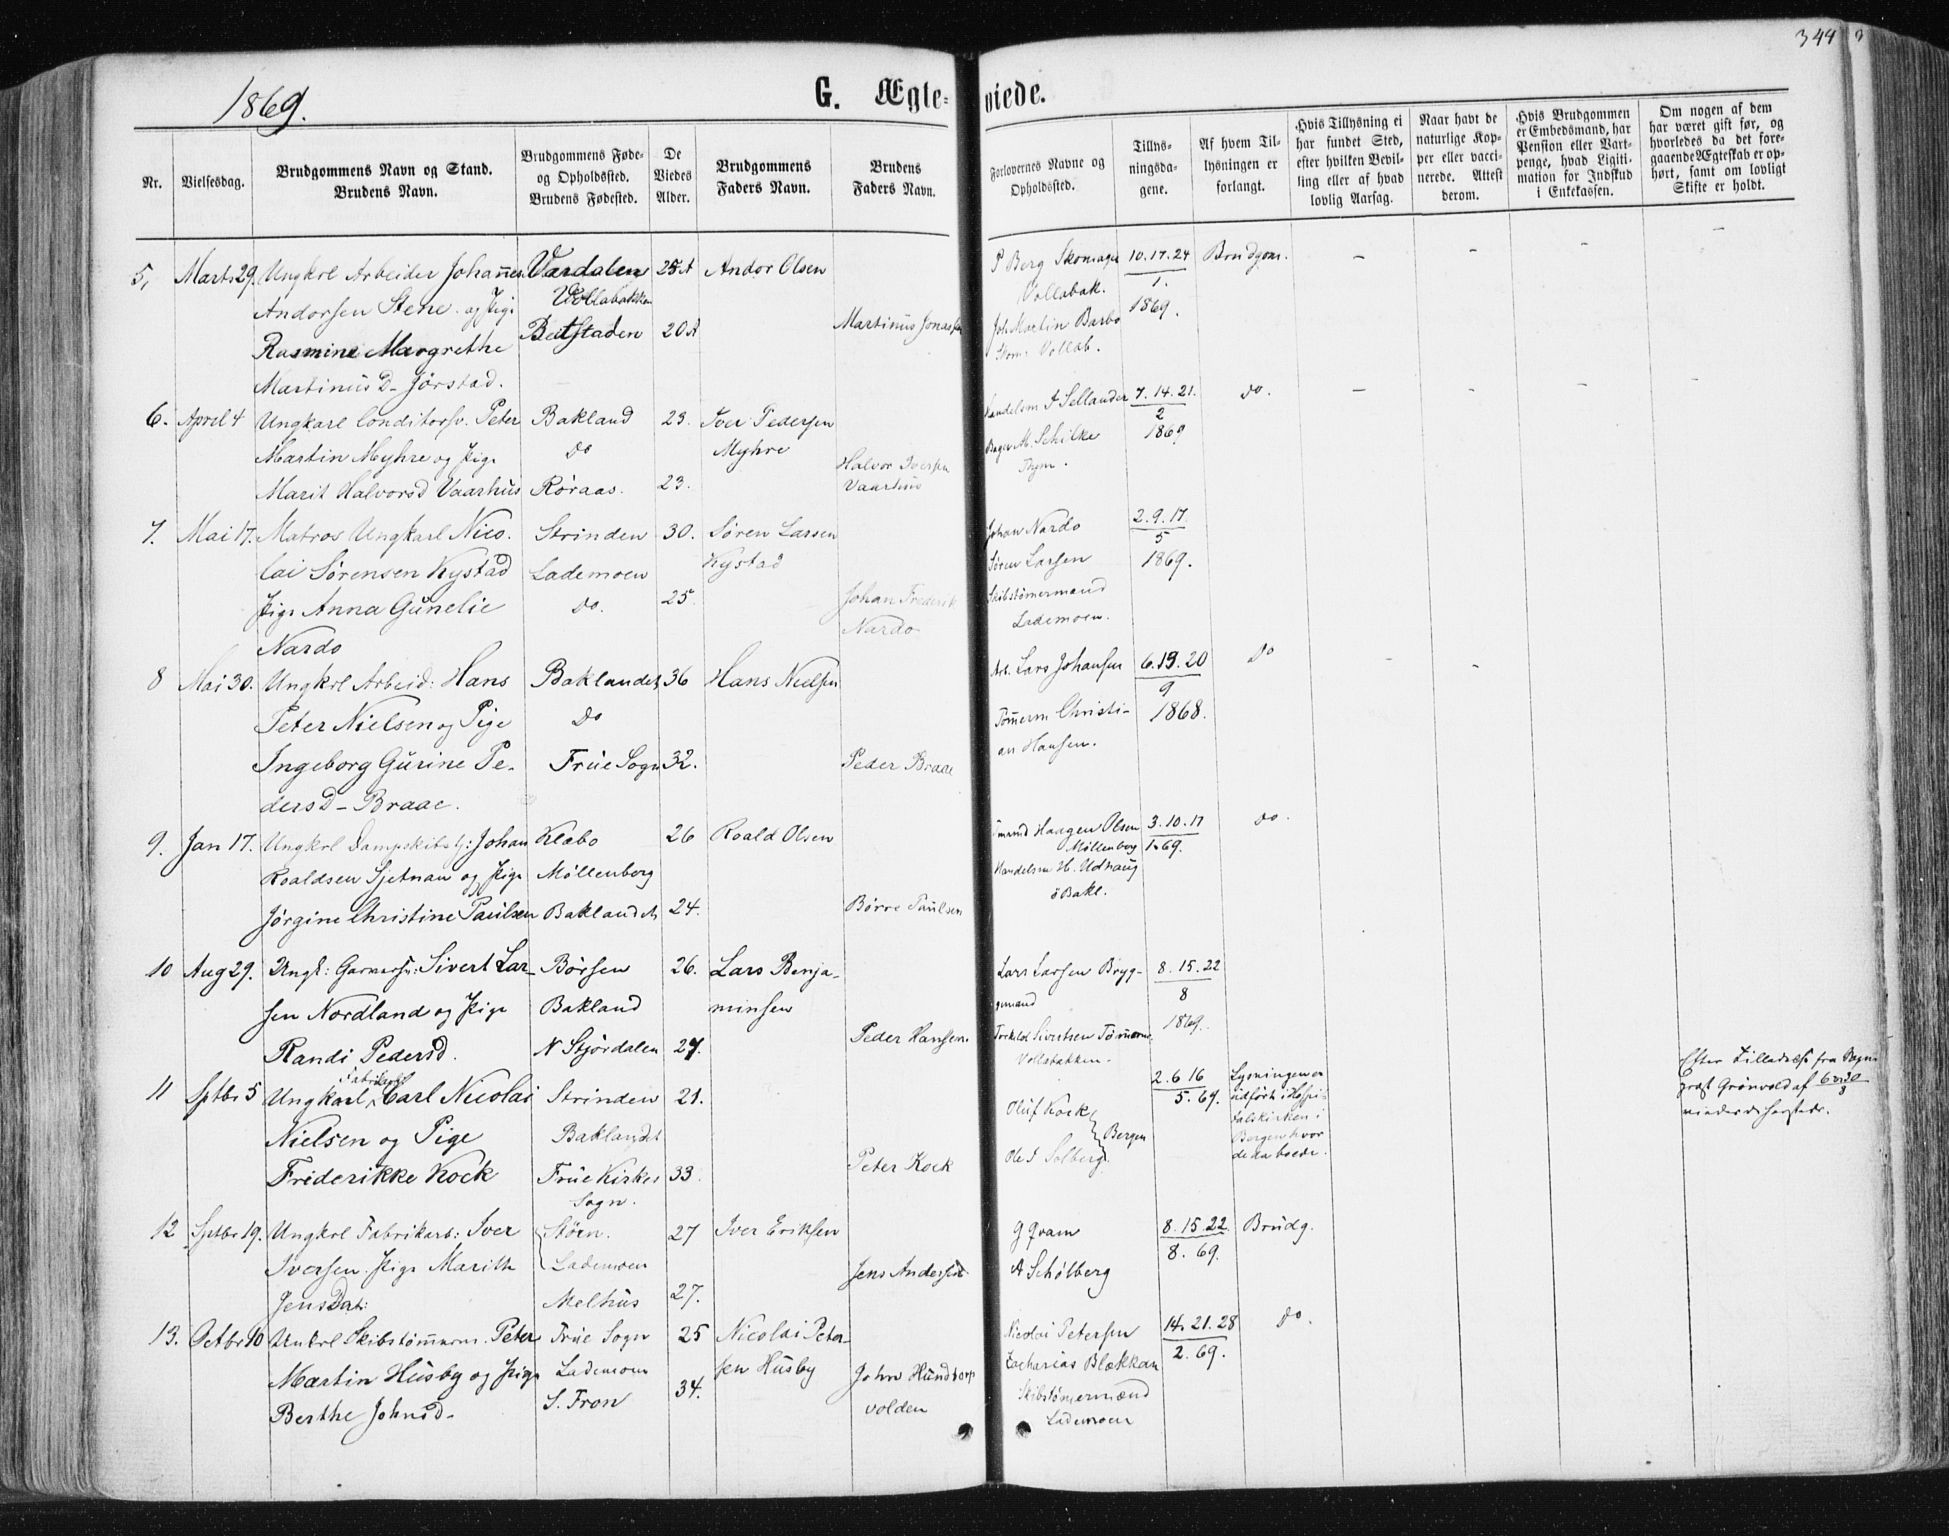 344
1869.
G. Ægte-
viede.
Nr.
Vielsesdag.
Brudgommens Navn og Stand.
Brudens Navn.
Brudgommens Føde-
og Opholdssted.
Brudens Fødested.
De
Viedes
Alder.
Brudgommens
Faders Navn.
Brudens
Faders Navn.
Forlovernes Navne og
Opholdssted.
Tillys-
ningsda-
gene.
Af hvem Til-
lysningen er
forlangt.
Hvis Tillysning ei
har fundet Sted,
efter hvilken Bevil-
ling eller af hvad
lovlig Aarsag.
Naar havt de
naturlige Kop-
per eller vacci-
nerede. Attest
derom.
Hvis Brudgommen
er Embedsmand, har
Pension eller Vart-
penge, hvad Ligiti-
mation for Indskud
i Enkekassen.
Om nogen af dem
har været gift før, og
hvorledes da det fore-
gaaende Ægteskab er op-
hørt, samt om lovligt
Skifte er holdt.
5, Marts 29. Ungkrl Arbeider Johannes Værdalen 25 A Andor Olsen
Andorsen Stene og Pige Vollabakken
Rasmine Margrethe Beitstaden 20 A Martinus Jonassen
Martinus D- Jørstad.
P Berg Skomager 10.17.24 Brudgom.
Vollabak. 1.
Joh Martin Barbo 1869.
Skom. Vollab.
6. April 4 Ungkarl Conditorsv. Peter Bakland 23. Iver Pedersen
Martin Myhre og Pige Do Myhre
Marit Halvorsd Vaarhus Røraas. 23. Halvor Iversen
Vaarhus
Handelsm I Sellander 7.14.21. do.
2
Bager M. Schilke 1869
Byen.
7. Mai 17. Matros Ungkarl Nico- Strinden 30. Søren Larsen
lai Sørensen Kystad Lademoen Kystad
Pige Anna Gunelie do. 25. Johan Frederik
Nardo Nardo
Johan Nardo 2.9.17
5
Søren Larsen 1869.
Skibstømermand
Lademoen.
8 Mai 30. Ungkrl Arbeid: Hans Baklandet 36 Hans Nielsen
Peter Nielsen og Pige Do
Ingeborg Gurine Pe- Frue Sogn 32. Peder Braae
dersd- Braae.
Arb. Lars Johansen 6.13.20 Do
9
Tømerm Christi- 1868.
an Hansen.
9. Jan 17. Ungkrl Dampskibs Johan Klæbo 26 Roald Olsen
Roaldsen Sjetnan og Pige Møllenberg
Jørgine Christine Paulsen Baklandet 24. Børre Paulsen
Haagen Olsen 3.10.17 do.
Møllenberg 1.69.
Handelsm H. Udnaug
Bakl.
10 Aug 29. Ungk: Garversv: Sivert Lar- Børsen 26. Lars Benja-
sen Nordland og Pige Bakland minsen
Randi Pedersd. N Stjørdalen 27. Peder Hansen.
Lars Larsen Bryg- 8.15.22
gemand 8
Torkild Sivertsen Tømerm. 1869.
Vollabakken.
11 Sptbr 5 Ungkarl Fabrikarb Carl Nicolai Strinden 21.
Nielsen og Pige Baklandet
Frederikke Kock Frue Kirkes 33. Peter Kock
Sogn.
2.6 16 Lysningen er
5.69. udført i Hospi-
Oluf Kock talskirken i
Bergen Bergen hvor
Ole I Solberg. de da boede.
Efter Tilladelse fra Sogne
præst Grønvold af 6 30
8
viede de hersteds.
12 Sptbr 19. Ungkrl Fabrikarb: Iver Støren. 27 Iver Eriksen
Iversen. Pige Marith Lademoen
Jens Datr: Melhus 27. Jens Andersen
G Qvam 8.15.22. Brudg.
A Schølberg 8.69.
13. Octbr 10 Unkrl Skibstømmerm. Peter Frue Sogn 25 Nicolai Peter-
Martin Husby og Pige Lademoen sen Husby
Berthe Johnsd- S. Fron 34. John Hundtorp
volden
Nicolai Petersen 14.21.28 do.
Zacharias Blækkan 2.69.
Skibstømermænd
Lademoen